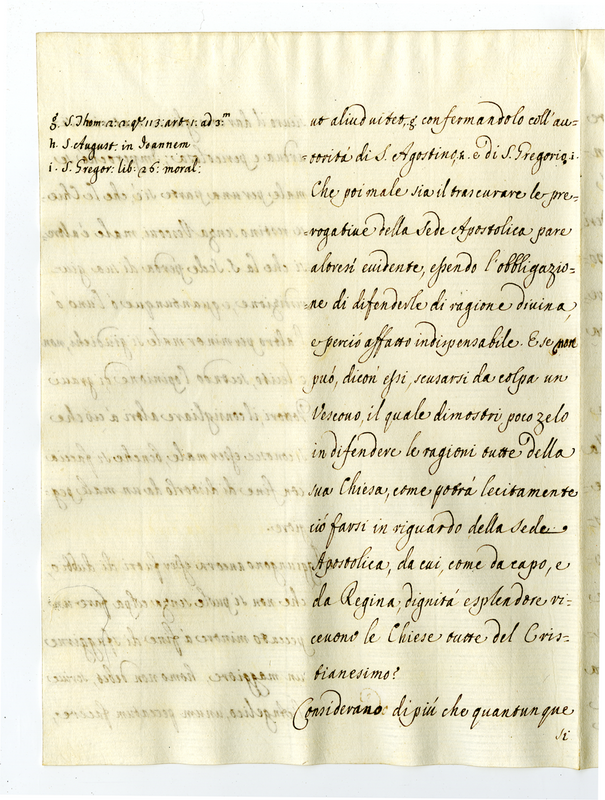 g. S. Thom: 2: 2: qu: 113: art: 1: ad 3.m
h. S. August: in Joannem
i. S. Gregor: lib: 26: moral:
ut aliud vitet, g. confermandolo coll'au-
-torità di S. Agostino, h. e di S. Gregorio, i.
Che poi male sia il trascurare le pre-
-rogative della Sede Apostolica pare
altresì evidente, essendo l'obbligazio-
-ne di difenderle di ragione divina,
e perciò affatto indispensabile. E se non
può, dicon essi, scusarsi da colpa un
Vescovo, il quale dimostri poco zelo
in difendere le ragioni tutte della
sua Chiesa, come potrà lecitamente
ciò farsi in riguardo della Sede
Apostolica, da cui, come da capo, e
da Regina, dignità e splendore ri-
cevono le Chiese tutte del Cris-
tianesimo?
Considerano di più che quantunque
si